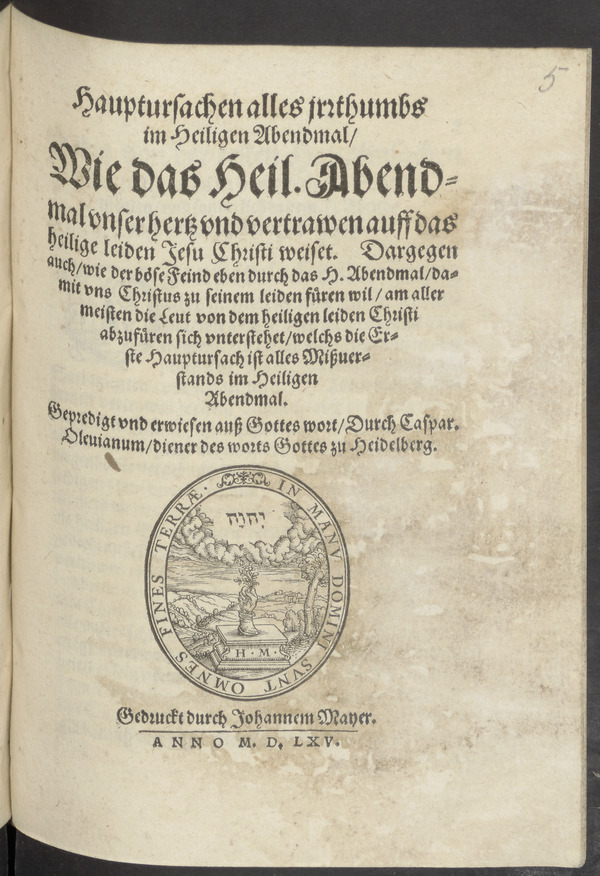 5
Hauptursachen alles jrrthumbs
im Heiligen Abendmal/
Wie das Heil. Abend-
mal vnser hertz vnd vertrawen auff das
heilige leiden Jesu Christi weiset. Dargegen
auch/wie der böse Feind eben durch das H. Abendmal/da-
mit vns Christus zu seinem leiden füren wil/am aller
meisten die Leut von dem heiligen leiden Christi
abzufüren sich vnterstehet/welchs die Er-
ste Hauptursach ist alles Mißuer-
stands im Heiligen
Abendmal.
Gepredigt vnd erwiesen auß Gottes wort/Durch Caspar.
Oleuianum/diener des worts Gottes zu Heidelberg.
IN MANV DOMINI SVNT OMNES FINES TERRÆ.
יְהוָה
H·M·
Gedruckt durch Johannem Mayer.
ANNO M. D. LXV.